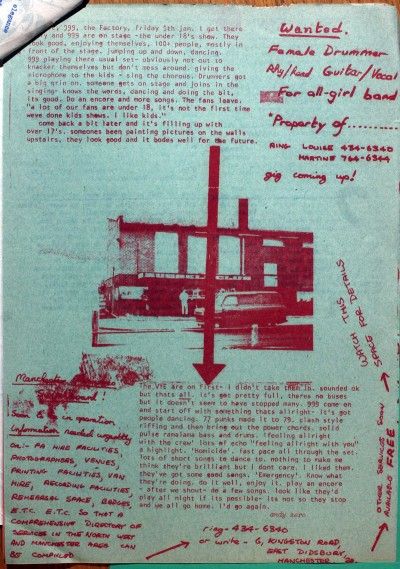 999, the Factory, Friday 5th jan. I got there
and 999 are on stage -the under 18's show. They
look good, enjoying themselves, 100+ people, mostly in
front of the stage, jumping up and down, dancing.
999 playing there usual set- obviously not out to
knacker themselves but don't mess around- giving the
microphone to the kids - sing the chorous. Drummers got
a big grin on. someone gets on stage and joins in the
singing- knows the words, dancing and doing the bit,
its good. Do an encore and more songs. The fans leave.
"a lot of our fans are under 18, it's not the first time
weve done kids shows. I like kids."
come back a bit later and it's filling up with
over 17's. someones been painting pictures on the walls
upstairs, they look good and it bodes well for the future.
Wanted.
Female Drummer
Guitar/Vocal
For all-girl band
"Property of......
RING LOUISE 434-6340
MARTINE 764-6344
gig coming up!
WATCH THIS
SPACE FOR DETAILS
The VIE are on first- I didn't take them in. sounded ok
but thats all. it's get pretty full, theres no buses
but it doesn't seem to have stopped many. 999 come on
and start off with something thats allright- it's got
people dancing. 77 punks made it to 79. clash style
riffing and then bring out the power chords, solid
pulse ranalana bass and drums. 'feeling allright
with the crew' lots of echo "feeling allright with you"
a highlight. 'Homicide'. fast pace all through the set.
lots of short songs to dance to. nothing to make me
think they're brilliant but i dont care. I liked them.
they've got some good songs. 'Emergency'. Know what
they're doing, do it well, enjoy it. play an encore
- after we shout- de a few songs. look like they'd
play all night if its possible- its not so they stop
and we all go home. I'd go again.
andy zero
Manchester
Soon in operation
Information needed urgently
on:- PA HIRE FACILITIES,
PHOTOGRAPHERS, VENUES,
PRINTING FACILITIES, VAN
HIRE, RECORDING FACILITIES,
REHEARSAL SPACE, BADGES,
E.T.C. E.T.C. SO THAT A
COMPREHENSIVE DIRECTORY OF
SERVICES IN THE NORTH WEST
AND MANCHESTER AREA CAN
BE COMPILED
ring-434-6340
or write - 6, KINGSTON ROAD,
EAST DIDSBURY,
MANCHESTER 20.
THESE SERVICES SOON
AVAILABLE FREE